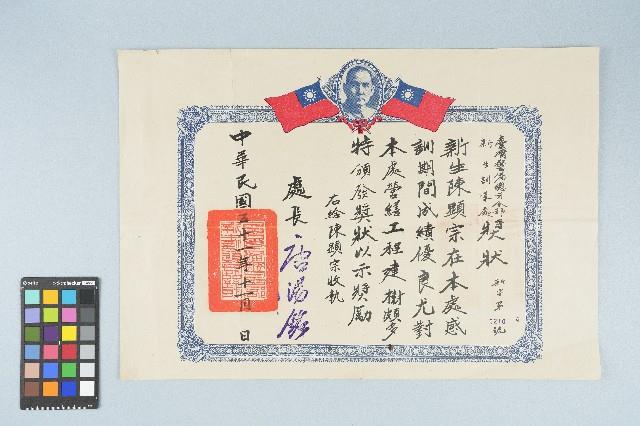 臺灣警備總司令部
新生訓導處
獎狀
新字第
號
新生陳顯宗在本處感
訓期間成績優良尤對
本處營繕工程建樹頗多
特頒發獎狀以示獎勵
右給陳顯宗收執
處長
中華民國 年十一月 日